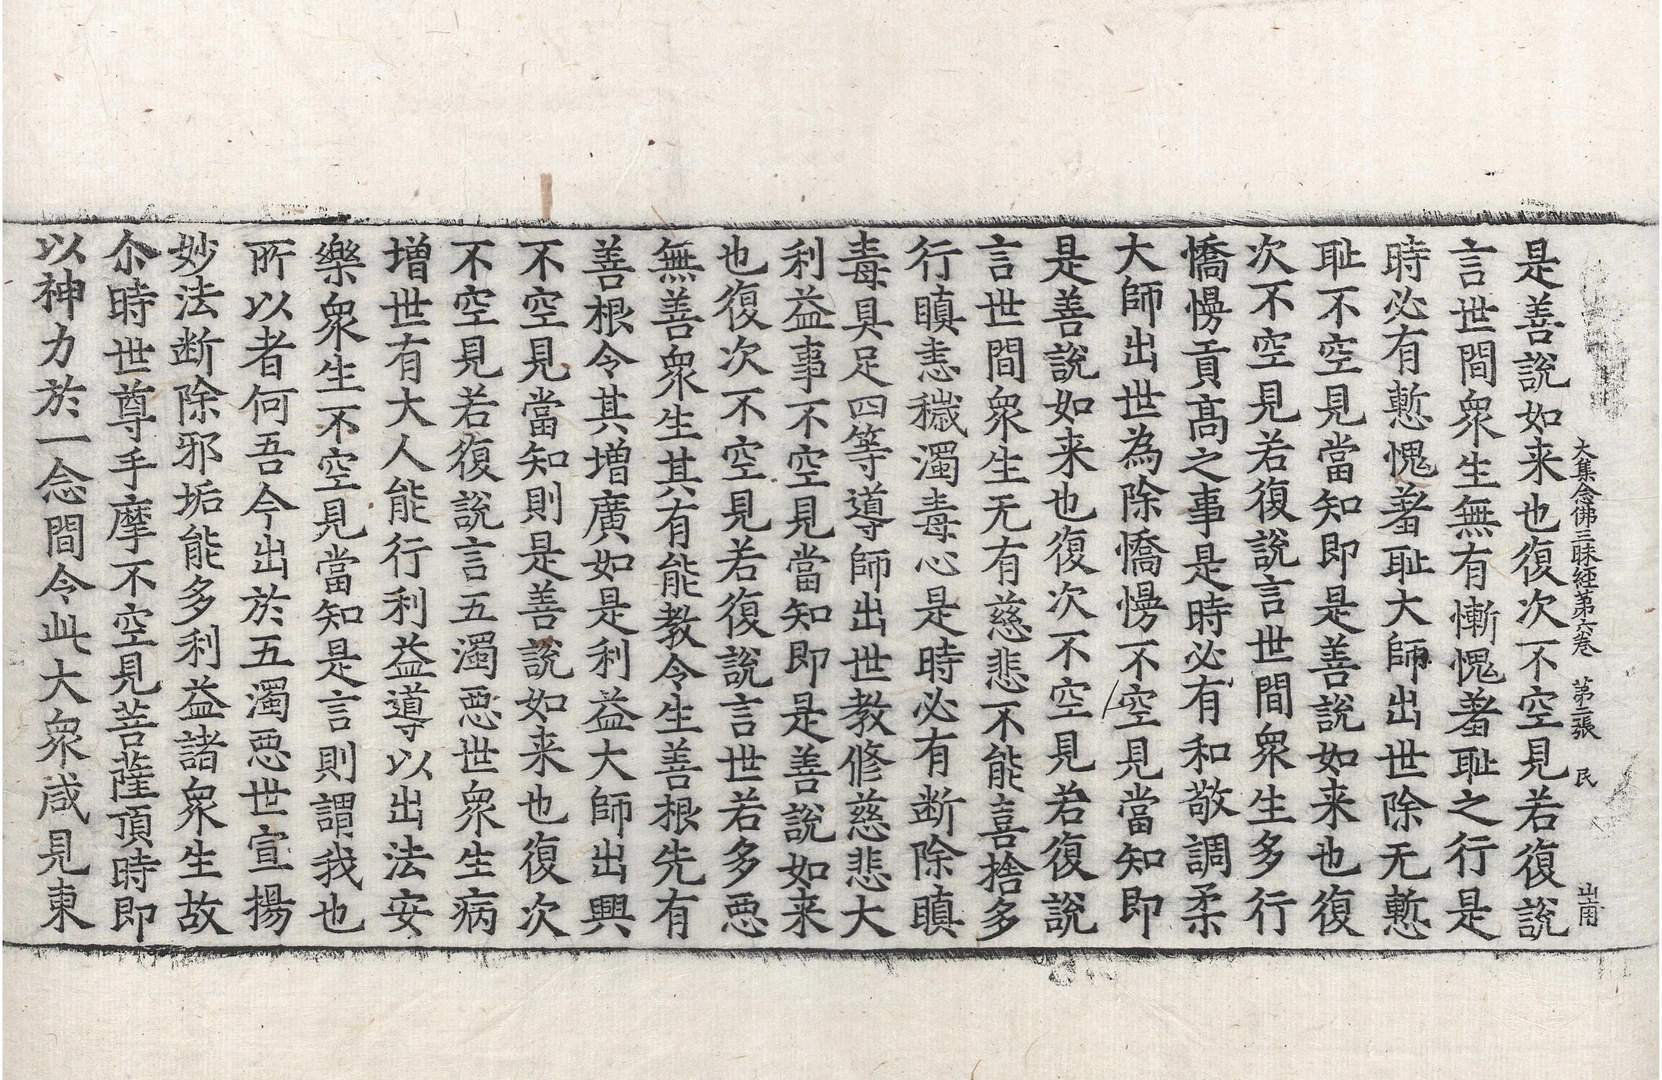 大集念佛三昧経苐六卷 苐二張 民
是善說如来也復次不空見若復說
言世間衆生無有慚愧羞恥之行是
時必有慙愧羞恥大師出世除无慙
恥不空見當知即是善說如来也復
次不空見若復說言世間衆生多行
憍慢貢髙之事是時必有和敬調柔
大師出世為除憍慢不空見當知即
是善說如来也復次不空見若復說
言世間衆生无有慈悲不能喜捨多
行瞋恚穢濁毒心是時必有断除瞋
毒具足四等導師出世教修慈悲大
利益事不空見當知即是善說如来
也復次不空見若復說言世若多惡
無善衆生其有能教令生善根先有
善根令其增廣如是利益大師出興
不空見當知則是善說如来也復次
不空見若復說言五濁惡世衆生病
增世有大人能行利益導以出法安
樂衆生不空見當知是言則謂我也
所以者何吾今出於五濁惡世宣揚
妙法断除邪垢能多利益諸衆生故
尒時世尊手摩不空見菩薩頂時即
以神力於一念間令此大衆咸見東